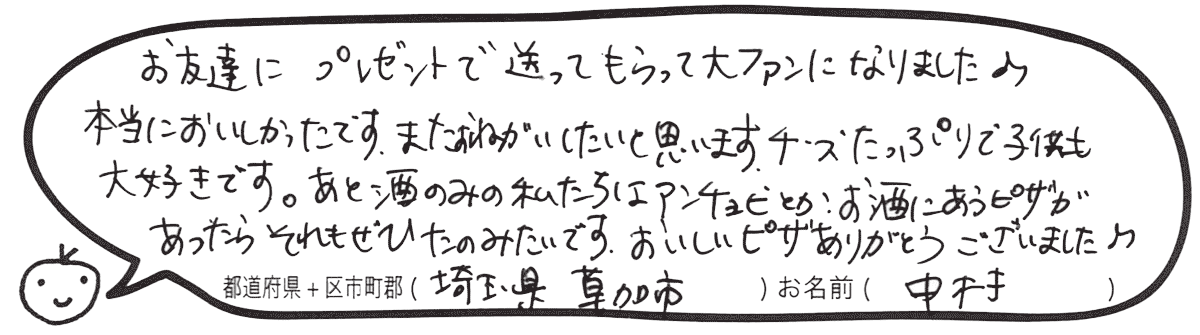 お友達に プレゼントで 送ってもらって大ファンになりました♪
本当においしかったです。またおねがいしたいと思います。チーズたっぷりで子供も
大好きです。あと酒のみの私たちはアンチョビとか、お酒にあうピザが
あったら それもぜひたのみたいです。おいしいピザありがとう ございました♪
都道府県+区市町郡( 埼玉県 草加市 )お名前( 中村 )